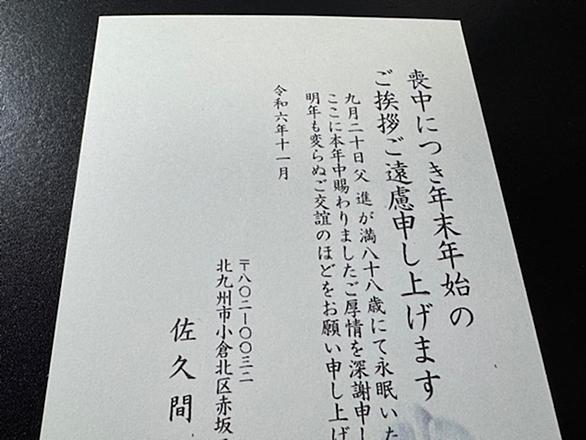 喪中につき年末年始の
ご挨拶ご遠慮申し上げます
九月二十日 父 進が満八十八歳にて永眠いた
ここに本年中賜わりましたご厚情を深謝申し
明年も変らぬご交誼のほどをお願い申し上げ
令和六年十一月
〒八〇二-〇〇三二
北九州市小倉北区赤坂
佐久間